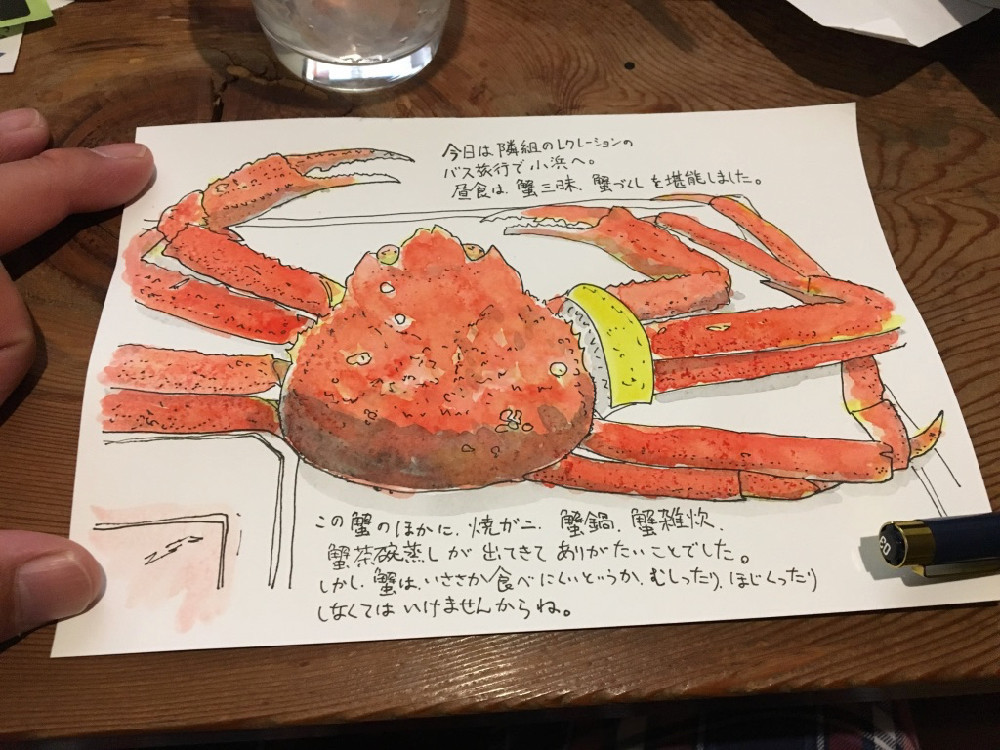 今日は隣組のレクレーションの
バス旅行で小浜へ。
昼食は、蟹三昧、蟹づくしを堪能しました。
この蟹のほかに、焼ガニ、蟹鍋、蟹雑炊、
蟹茶碗蒸しが出てきてありがたいことでした。
しかし、蟹は、いささか食べにくいというか、むしったり、ほじくったり
しなくてはいけませんからね。